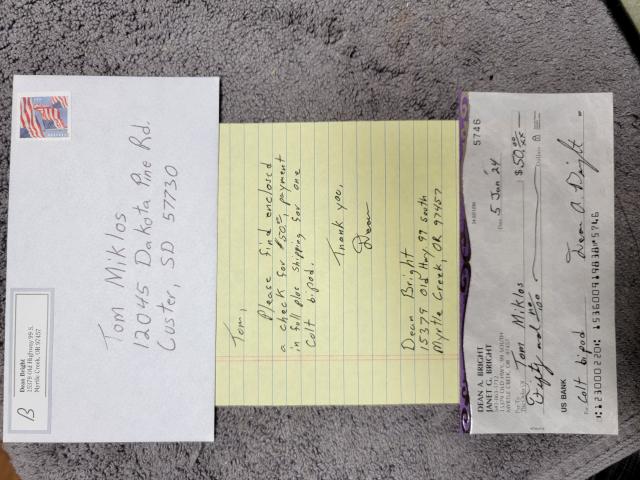 B
Dean Bright
15379 Old Highway 99 S.
Myrtle Creek, OR 97457
Tom Miklos
12045 Dakota Pine Rd.
Custer, SD 57730
Tom,
Please find enclosed
a check for $50.00, payment
in full plus shipping for one
Colt bipod.
Thank you,
Dean
Dean Bright
15379 Old Hwy 99 South
Myrtle Creek, OR, 97457
5746
DEAN A. BRIGHT
JANET G. BRIGHT
15379 OLD HWY. 99 SOUTH
MYRTLE CREEK, OR 97457
Date 5 Jan 24
Tom Miklos $50.00
Fifty and no/100 Dollars
US BANK
For Colt bipod Dean A. Bright